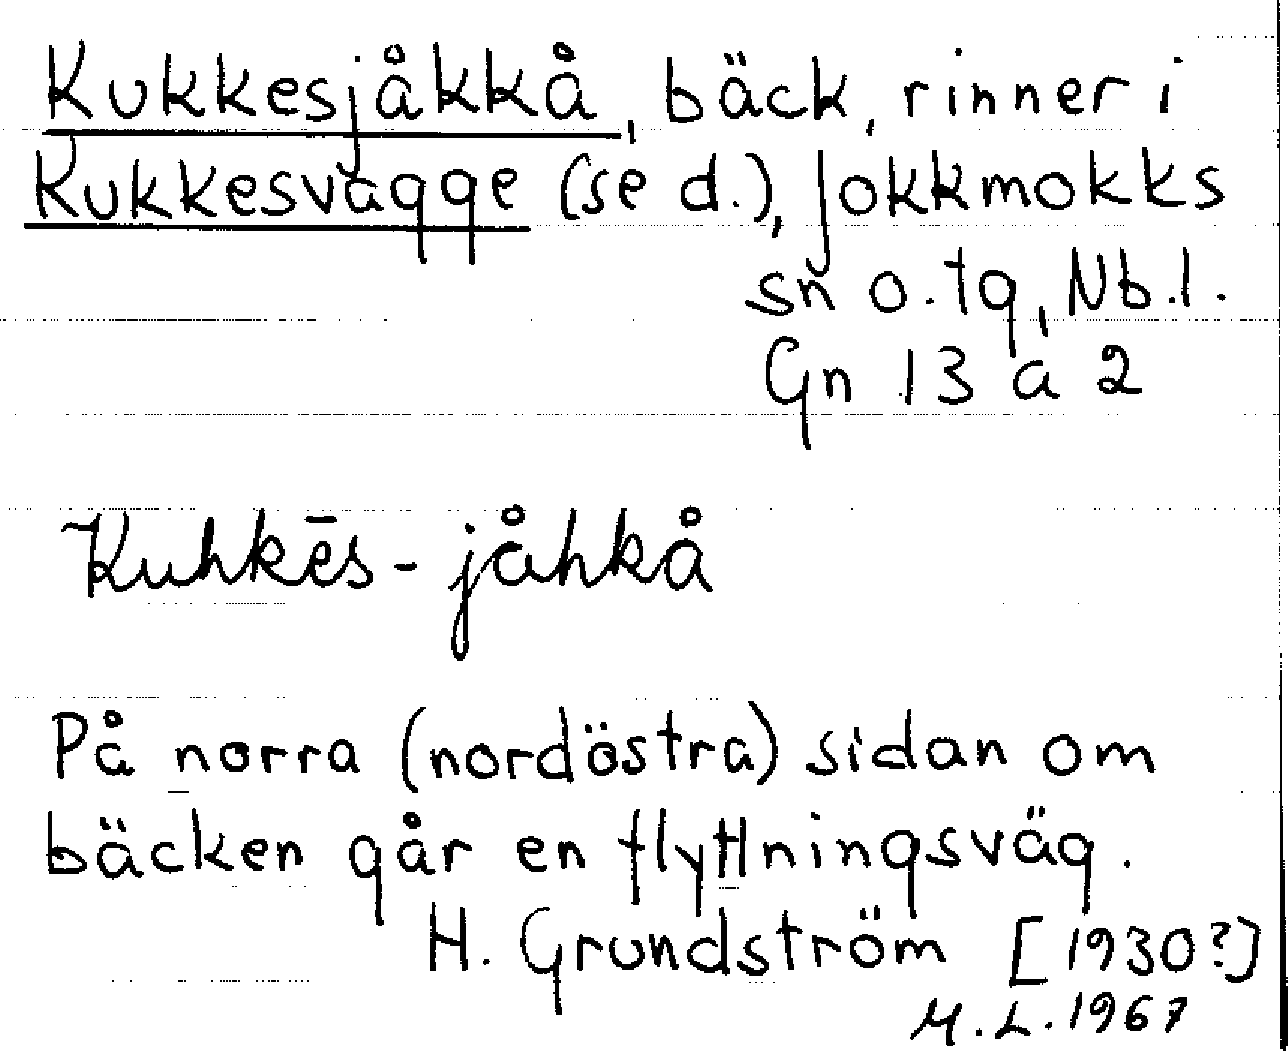 Kukkesjåkkå, bäck, rinner i
Kukkesvagge (se d.), Jokkmokks
sn o. tg, Nb.l.
Gn 13 a 2
Kuhkēs-jåhkå
På norra (nordöstra) sidan om
bäcken går en flyttningsväg.
H. Grundström [1930?]
M.L. 1967